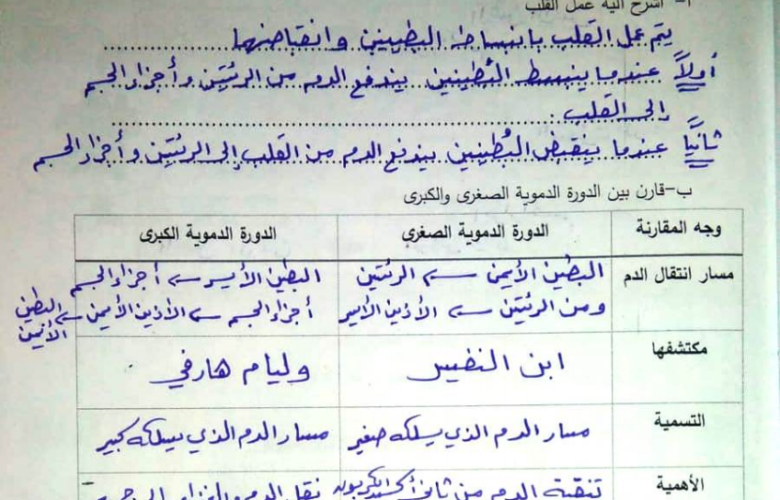 أ- اشرح آلية عمل القلب
يتم عمل القلب بانبساط البطينين وانقباضهما
أولاً عندما ينبسط البُطينين يندفع الدم من الرئتين وأجزاء الجسم
إلى القلب.
ثانيًا عندما ينقبض البُطينين يندفع الدم من القلب إلى الرئتين وأجزاء الجسم
ب-قارن بين الدورة الدموية الصغرى والكبرى
وجه المقارنة الدورة الدموية الصغرى الدورة الدموية الكبرى
مسار انتقال الدم البطين الأيمن ← الرئتين البطين الأيسر ← أجزاء الجسم
ومن الرئتين ← الأذين الأيسر أجزاء الجسم ← الأذين الأيمن ← البطين الأيمن
مكتشفها ابن النفيس وليام هارفي
التسمية مسار الدم الذي يسلكه صغير مسار الدم الذي يسلكه كبير
الأهمية تنقية الدم من ثاني أكسيد الكربون نقل الدم